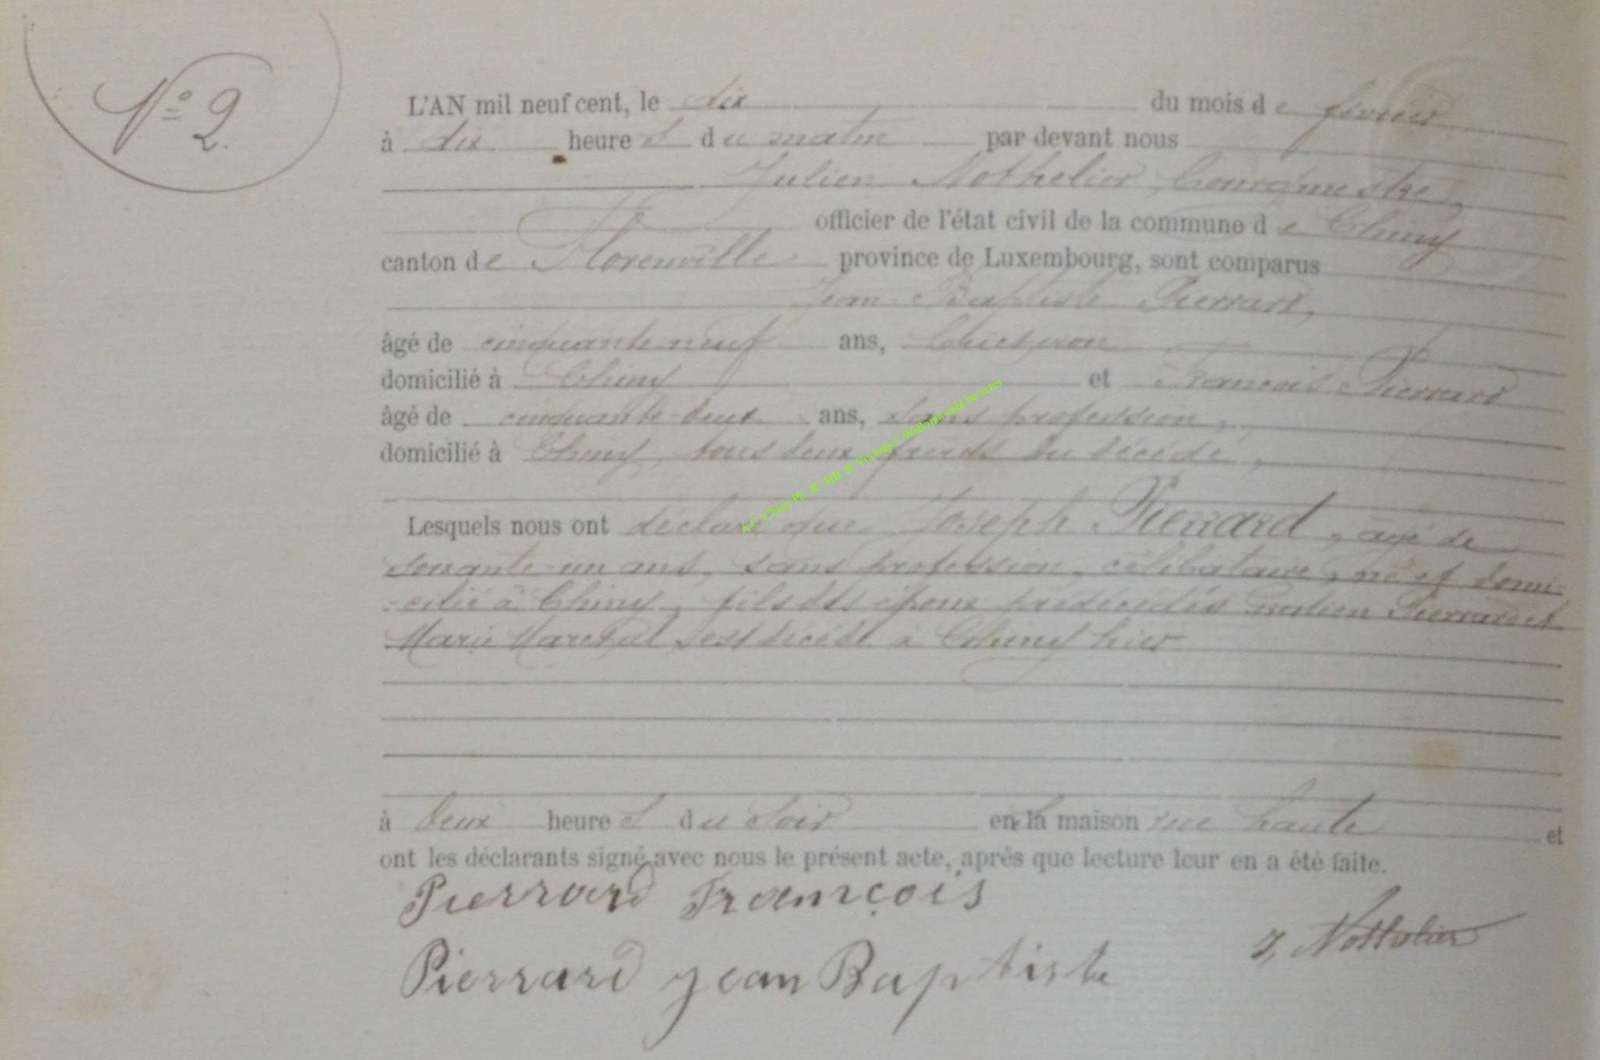 N° 2.
L'AN mil neuf cent, le dix du mois de février
à dix heures du matin par devant nous
Julien Nothelier, Bourgmestre,
officier de l'état civil de la commune de Chiny
canton de Florenville province de Luxembourg, sont comparus
Jean Baptiste Pierrard,
âgé de cinquante neuf ans,
domicilié à Chiny et François Pierrard
âgé de cinquante deux ans, sans profession,
domicilié à Chiny, tous deux frères du décédé,
Lesquels nous ont déclaré que Joseph Pierrard, âgé de
soixante un ans, sans profession, célibataire, né et domi-
-cilié à Chiny, fils des époux prédécédés Pierrard et
Marie Marechal, est décédé à Chiny hier
à deux heures du soir en la maison rue haute et
ont les déclarants signé avec nous le présent acte, après que lecture leur en a été faite.
Pierrard François
J. Nothelier
Pierrard jean Baptiste